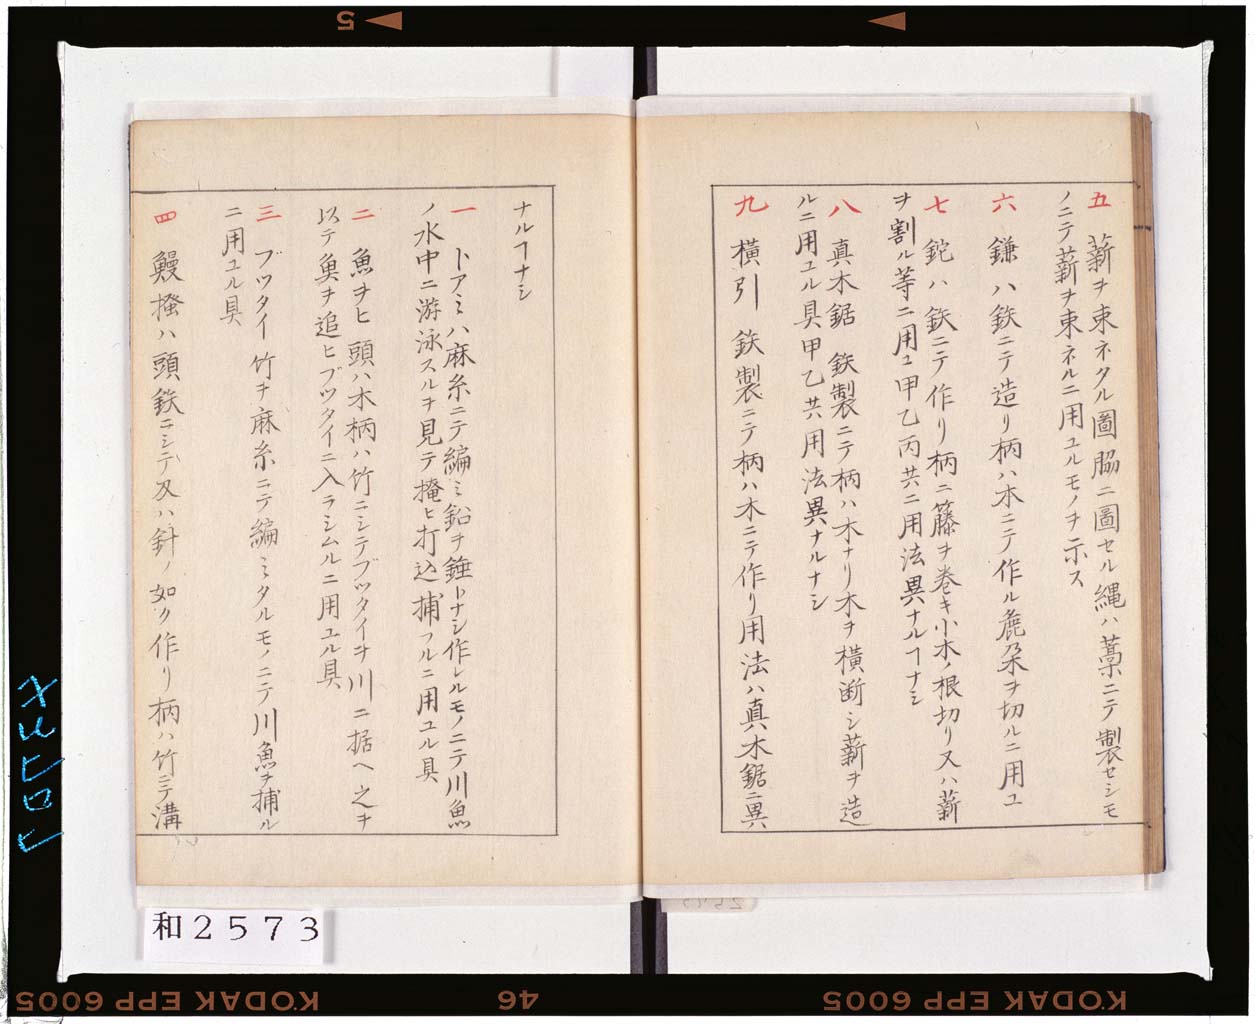 五 薪ヲ束ネタル圖脇ニ圖セル縄ハ藁ニテ製セシモ
ノニテ薪ヲ束ネルニ用ユルモノヲ示ス
六 鎌ハ鉄ニテ造リ柄ハ木ニテ作ル麁朶ヲ切ルニ用ユ
七 鉈ハ鉄ニテ作リ柄ニ籐ヲ巻キ小木ノ根切リ又ハ薪
ヲ割ル等ニ用ユ甲乙丙共ニ用法異ナルヿナシ
八 真木鋸 鉄製ニテ柄ハ木ナリ木ヲ横断シ薪ヲ造
ルニ用ユル具甲乙共用法異ナルナシ
九 横引 鉄製ニテ柄ハ木ニテ作リ用法ハ真木鋸ニ異
ナルヿナシ
一 トアミハ麻糸ニテ編ミ鉛ヲ錘トナシ作レルモノニテ川魚
ノ水中ニ游泳スルヲ見テ掩ヒ打込捕フルニ用ユル具
二 魚ヲヒ頭ハ木柄ハ竹ニシテブツタイヲ川ニ据ヘ之ヲ
以テ魚ヲ追ヒブツタイニ入ラシムルニ用ユル具
三 ブツタイ竹ヲ麻糸ニテ編ミタルモノニテ川魚ヲ捕ル
ニ用ユル具
四 鰻掻ハ頭鉄ニシテ及ハ針ノ如ク作リ柄ハ竹ニテ溝
和2573
KODAK EPP 6005
46
KODAK EPP 6005
5